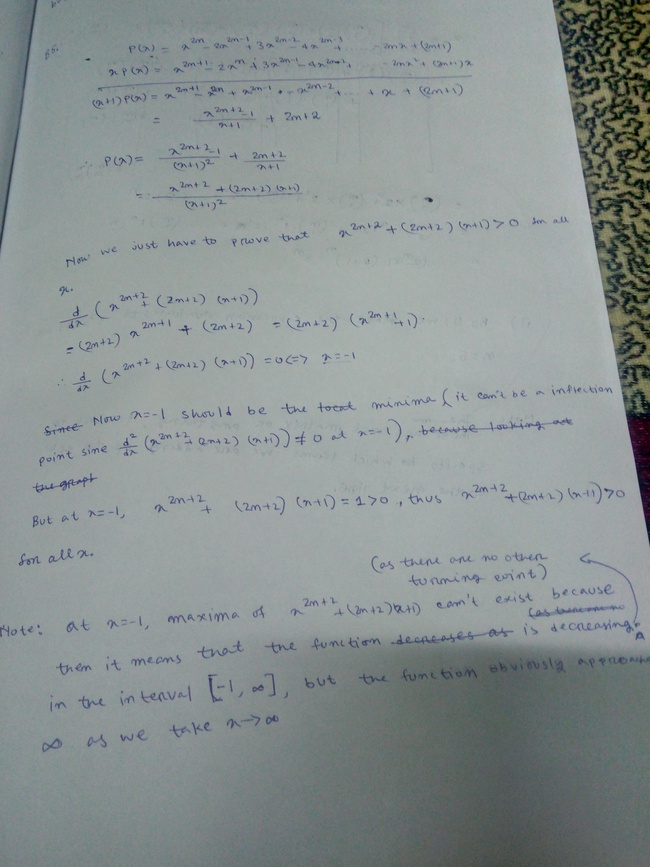 P(x) = x^{2n} - 2x^{2n-1} + 3x^{2n-2} - 4x^{2n-3} + - 2nx + (2n+1)
x P(x) = x^{2n+1} - 2x^{n} + 3x^{2n-1} - 4x^{2n-2} - 2nx² + (2n+1)x
(x+1) P(x) = x^{2n+1} - x^{2n} + x^{2n-1} - x^{2n-2} ... + x + (2n+1)
= \frac{x^{2n+2} - 1}{x+1} + 2n+2
∴ P(x) = \frac{x^{2n+2} - 1}{(x+1)^2} + \frac{2n+2}{x+1}
= \frac{x^{2n+2} + (2n+2)(x+1)}{(x+1)^2}
Now we just have to prove that x^{2n+2} + (2n+2)(x+1) > 0 for all
x.
\frac{d}{dx} (x^{2n+2} + (2n+2)(x+1))
= (2n+2) x^{2n+1} + (2n+2) = (2n+2)(x^{2n+1} + 1)
∴ \frac{d}{dx} (x^{2n+2} + (2n+2)(x+1)) = 0 <=> x = -1
Since Now x=-1 should be the minima (it can't be a inflection
point sine \frac{d^2}{dx} (x^{2n+2} + (2n+2)(x+1)) ≠ 0 at x=-1), because looking at
the graph
But at x=-1, x^{2n+2} + (2n+2)(x+1) = 1 > 0, thus x^{2n+2} + (2n+2)(x+1) > 0
for all x.
(as there are no other
turning point)
Note: at x=-1, maxima of x^{2n+2} + (2n+2)(x+1) can't exist because
then it means that the function decreases as is decreasing
in the interval [-1, ∞], but the function obviously approaches
∞ as we take x→∞